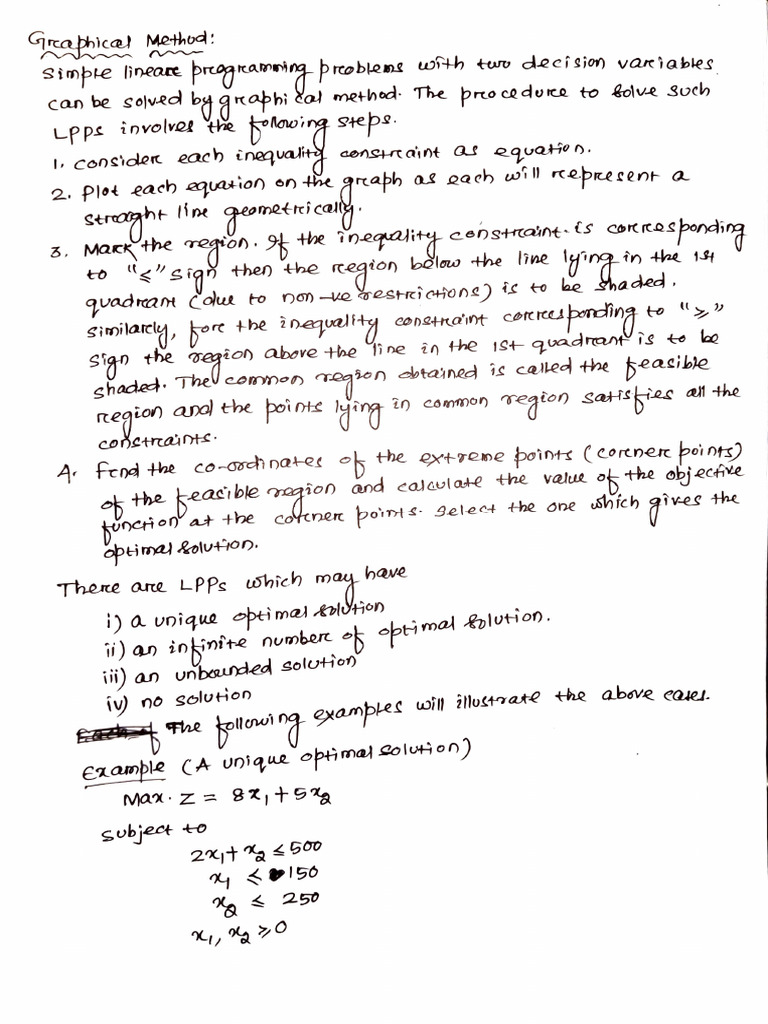 Graphical Method:
Simple linear programming problems with two decision variables
can be solved by graphical method. The procedure to solve such
LPPs involves the following steps.
1. consider each inequality constraint as equation.
2. Plot each equation on the graph as each will represent a
straight line geometrically.
3. Mark the region. If the inequality constraint is corresponding
to "≤" sign then the region below the line lying in the 1st
quadrant (due to non-ve restrictions) is to be shaded.
similarly, for the inequality constraint corresponding to "≥"
sign the region above the line in the 1st quadrant is to be
shaded. The common region obtained is called the feasible
region and the points lying in common region satisfies all the
constraints.
4. Find the co-ordinates of the extreme points (corner points)
of the feasible region and calculate the value of the objective
function at the corner points. Select the one which gives the
optimal solution.
There are LPPs which may have
i) a unique optimal solution
ii) an infinite number of optimal solution.
iii) an unbounded solution
iv) no solution
The following examples will illustrate the above cases.
Example (A unique optimal solution)
Max. Z = 8x₁ + 5x₂
subject to
2x₁ + x₂ ≤ 500
x₁ ≤ 150
x₂ ≤ 250
x₁, x₂ ≥ 0